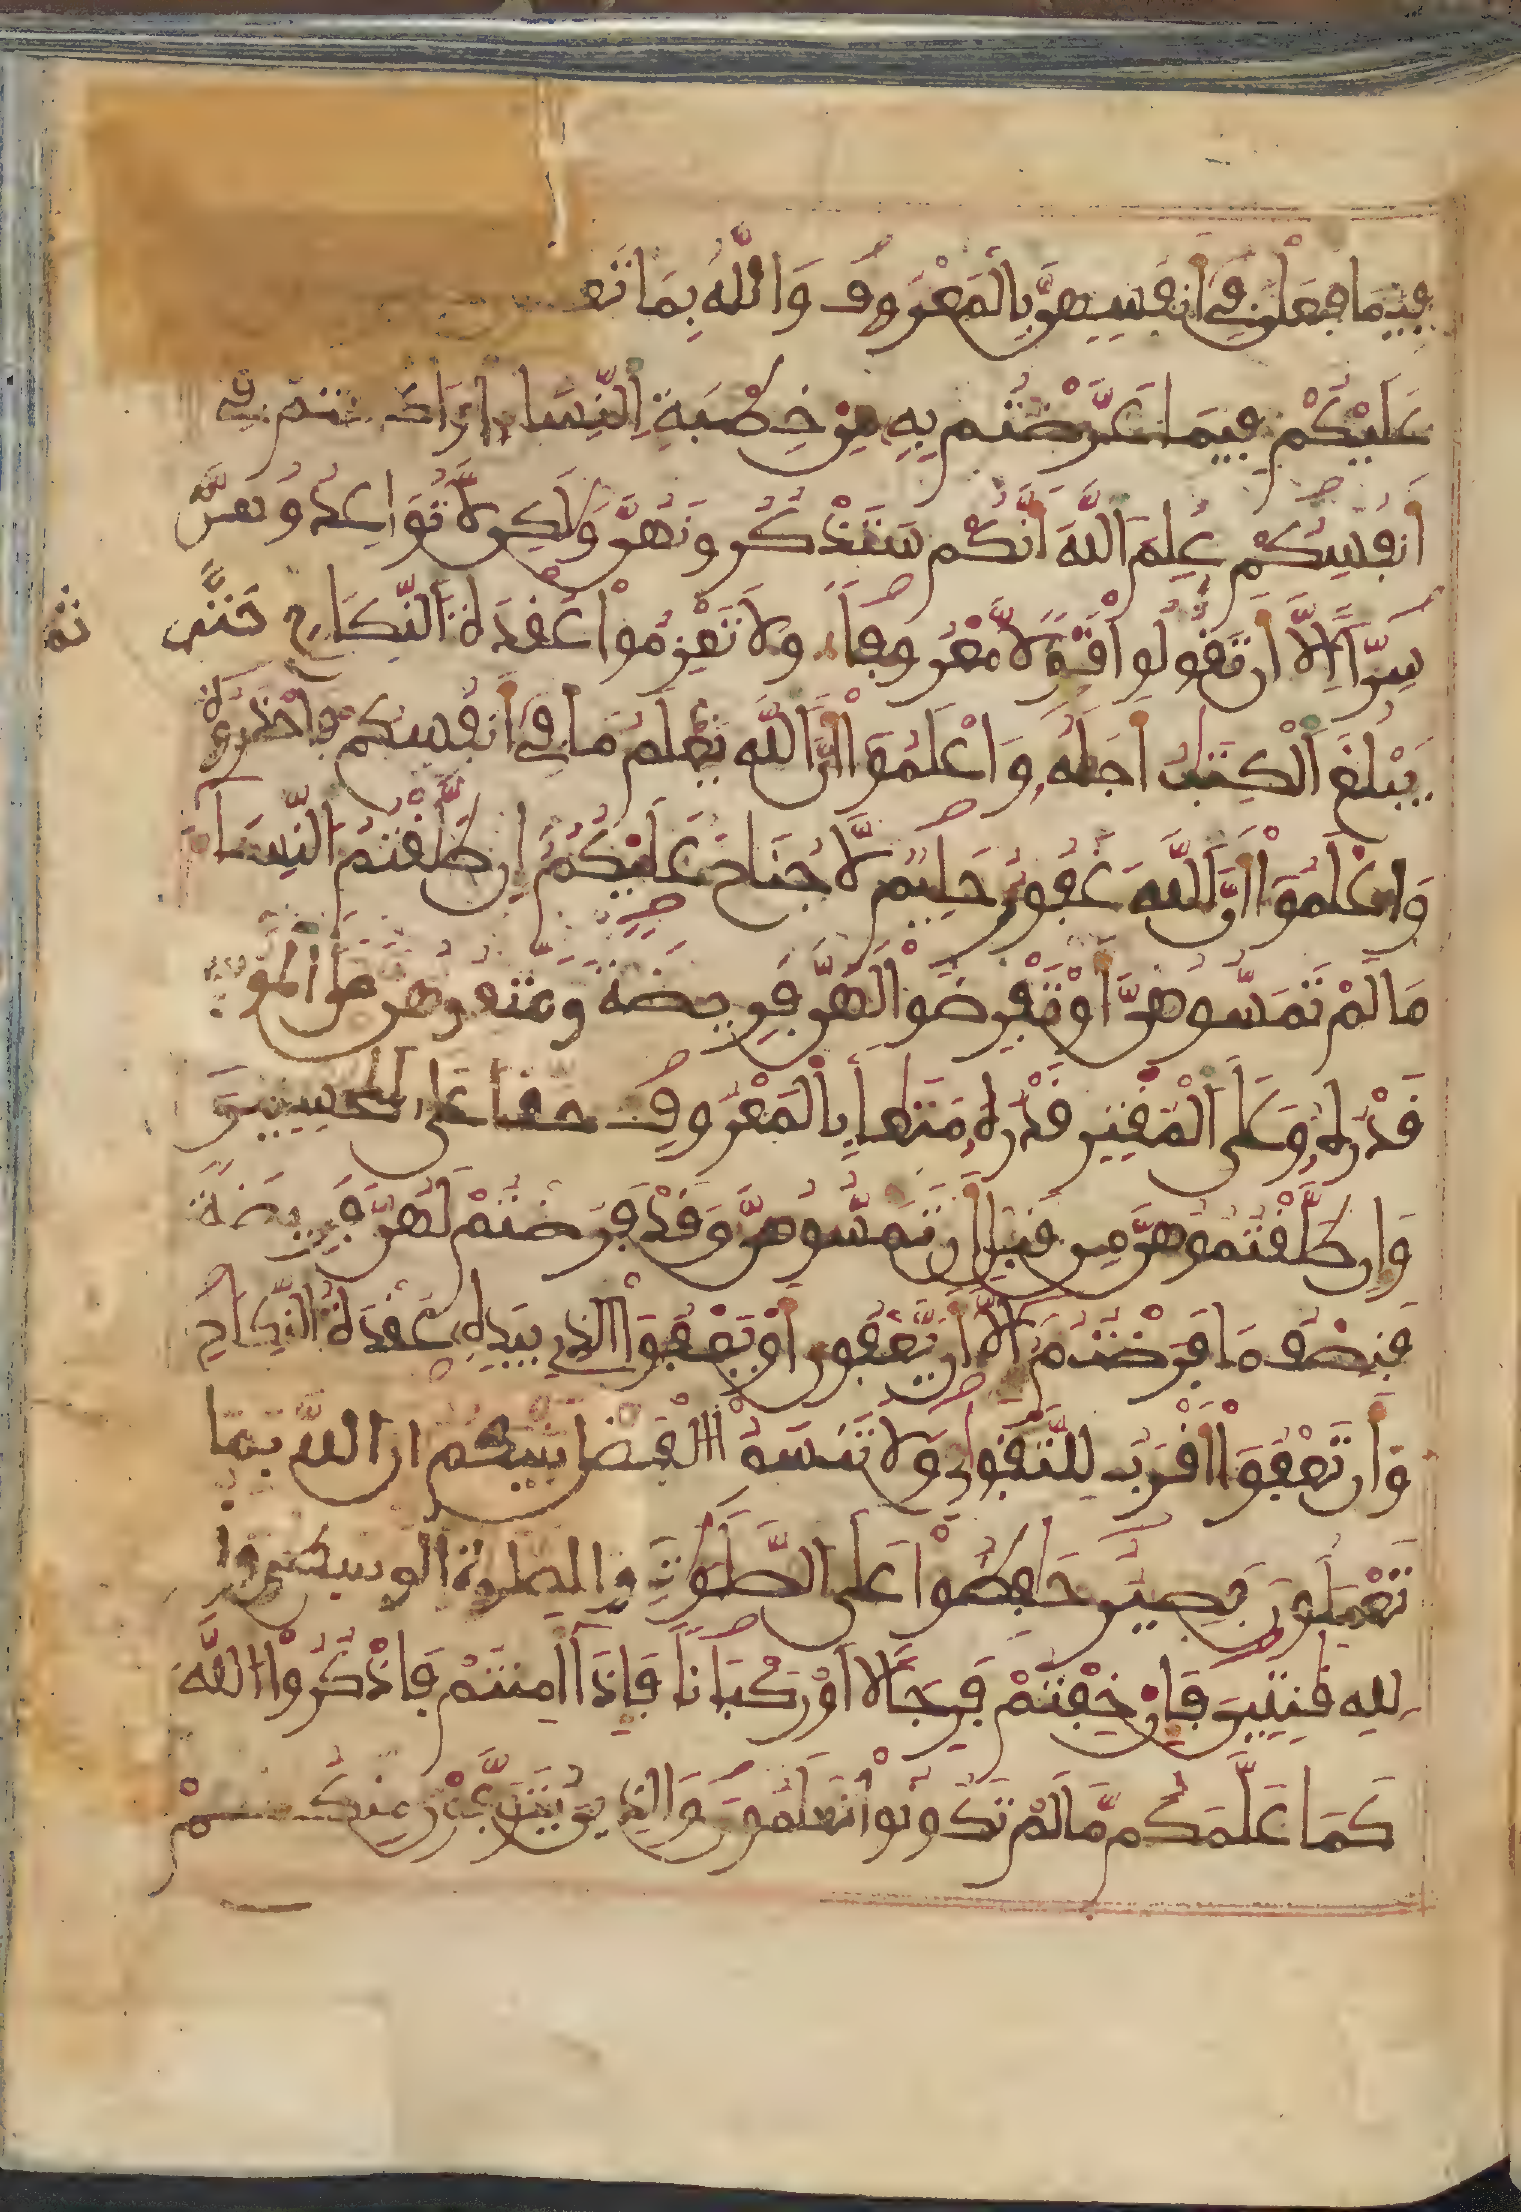 فِيمَا فَعَلْنَ فِي أَنفُسِهِنَّ بِالْمَعْرُوفِ وَاللَّهُ بِمَا تَع
عَلَيْكُمْ فِيمَا عَرَّضْتُم بِهِ مِنْ خِطْبَةِ النِّسَا أو اكننتم فِي
أَنفُسِكُمْ عَلِمَ اللَّهُ أَنَّكُمْ سَتَذْكُرُونَهُنَّ وَلَكِن لَّا تُوَاعِدُوهُنَّ
سِرًّا إِلَّا أَن تَقُولُوا قَوْلًا مَّعْرُوفًا وَلَا تَعْزِمُوا عُقْدَةَ النِّكَاحِ حَتَّى
يَبْلُغَ الْكِتَبُ أَجَلَهُ وَاعْلَمُوا أَنَّ اللَّهَ يَعْلَمُ مَا فِي أَنفُسِكُمْ فَاحْذَرُوهُ
ثم
وَاعْلَمُوا أَنَّ اللَّهَ غَفُورٌ حَلِيمٌ لَّا جُنَاحَ عَلَيْكُمْ إِن طَلَّقْتُمُ النِّسَا
مَا لَمْ تَمَسُّوهُنَّ أَوْ تَفْرِضُوا لَهُنَّ فَرِيضَةً وَمَتِّعُوهُنَّ عَلَى الْمُو
قَدْرُهُ وَعَلَى الْمُقْتِرِ قَدْرُهُ مَتَعًا بِالْمَعْرُوفِ حَقًّا عَلَى الْمُحْسِنِينَ
وَإِن طَلَّقْتُمُوهُنَّ مِن قَبْلِ أَن تَمَسُّوهُنَّ وَقَدْ فَرَضْتُمْ لَهُنَّ فَرِيضَةً
فَنِصْفُ مَا فَرَضْتُمْ إِلَّا أَن يَّعْفُونَ أَوْ يَعْفُوَا الَّذِي بِيَدِهِ عُقْدَةُ النِّكَاحِ
وَأَن تَعْفُوا أَقْرَبُ لِلتَّقْوَى وَلَا تَنسَوُا الْفَضْلَ بَيْنَكُمْ إِنَّ اللَّهَ بِمَا
تَعْمَلُونَ بَصِيرٌ حَفِظُوا عَلَى الصَّلَوَتِ وَالصَّلَوةِ الْوُسْطَى وَقُومُوا
لِلَّهِ قَنِتِينَ فَإِنْ خِفْتُمْ فَرِجَالًا أَوْ رُكْبَانًا فَإِذَا أَمِنتُمْ فَاذْكُرُوا اللَّهَ
كَمَا عَلَّمَكُم مَّا لَمْ تَكُونُوا تَعْلَمُونَ وَالَّذِينَ يُتَوَفَّوْنَ مِنكُمْ